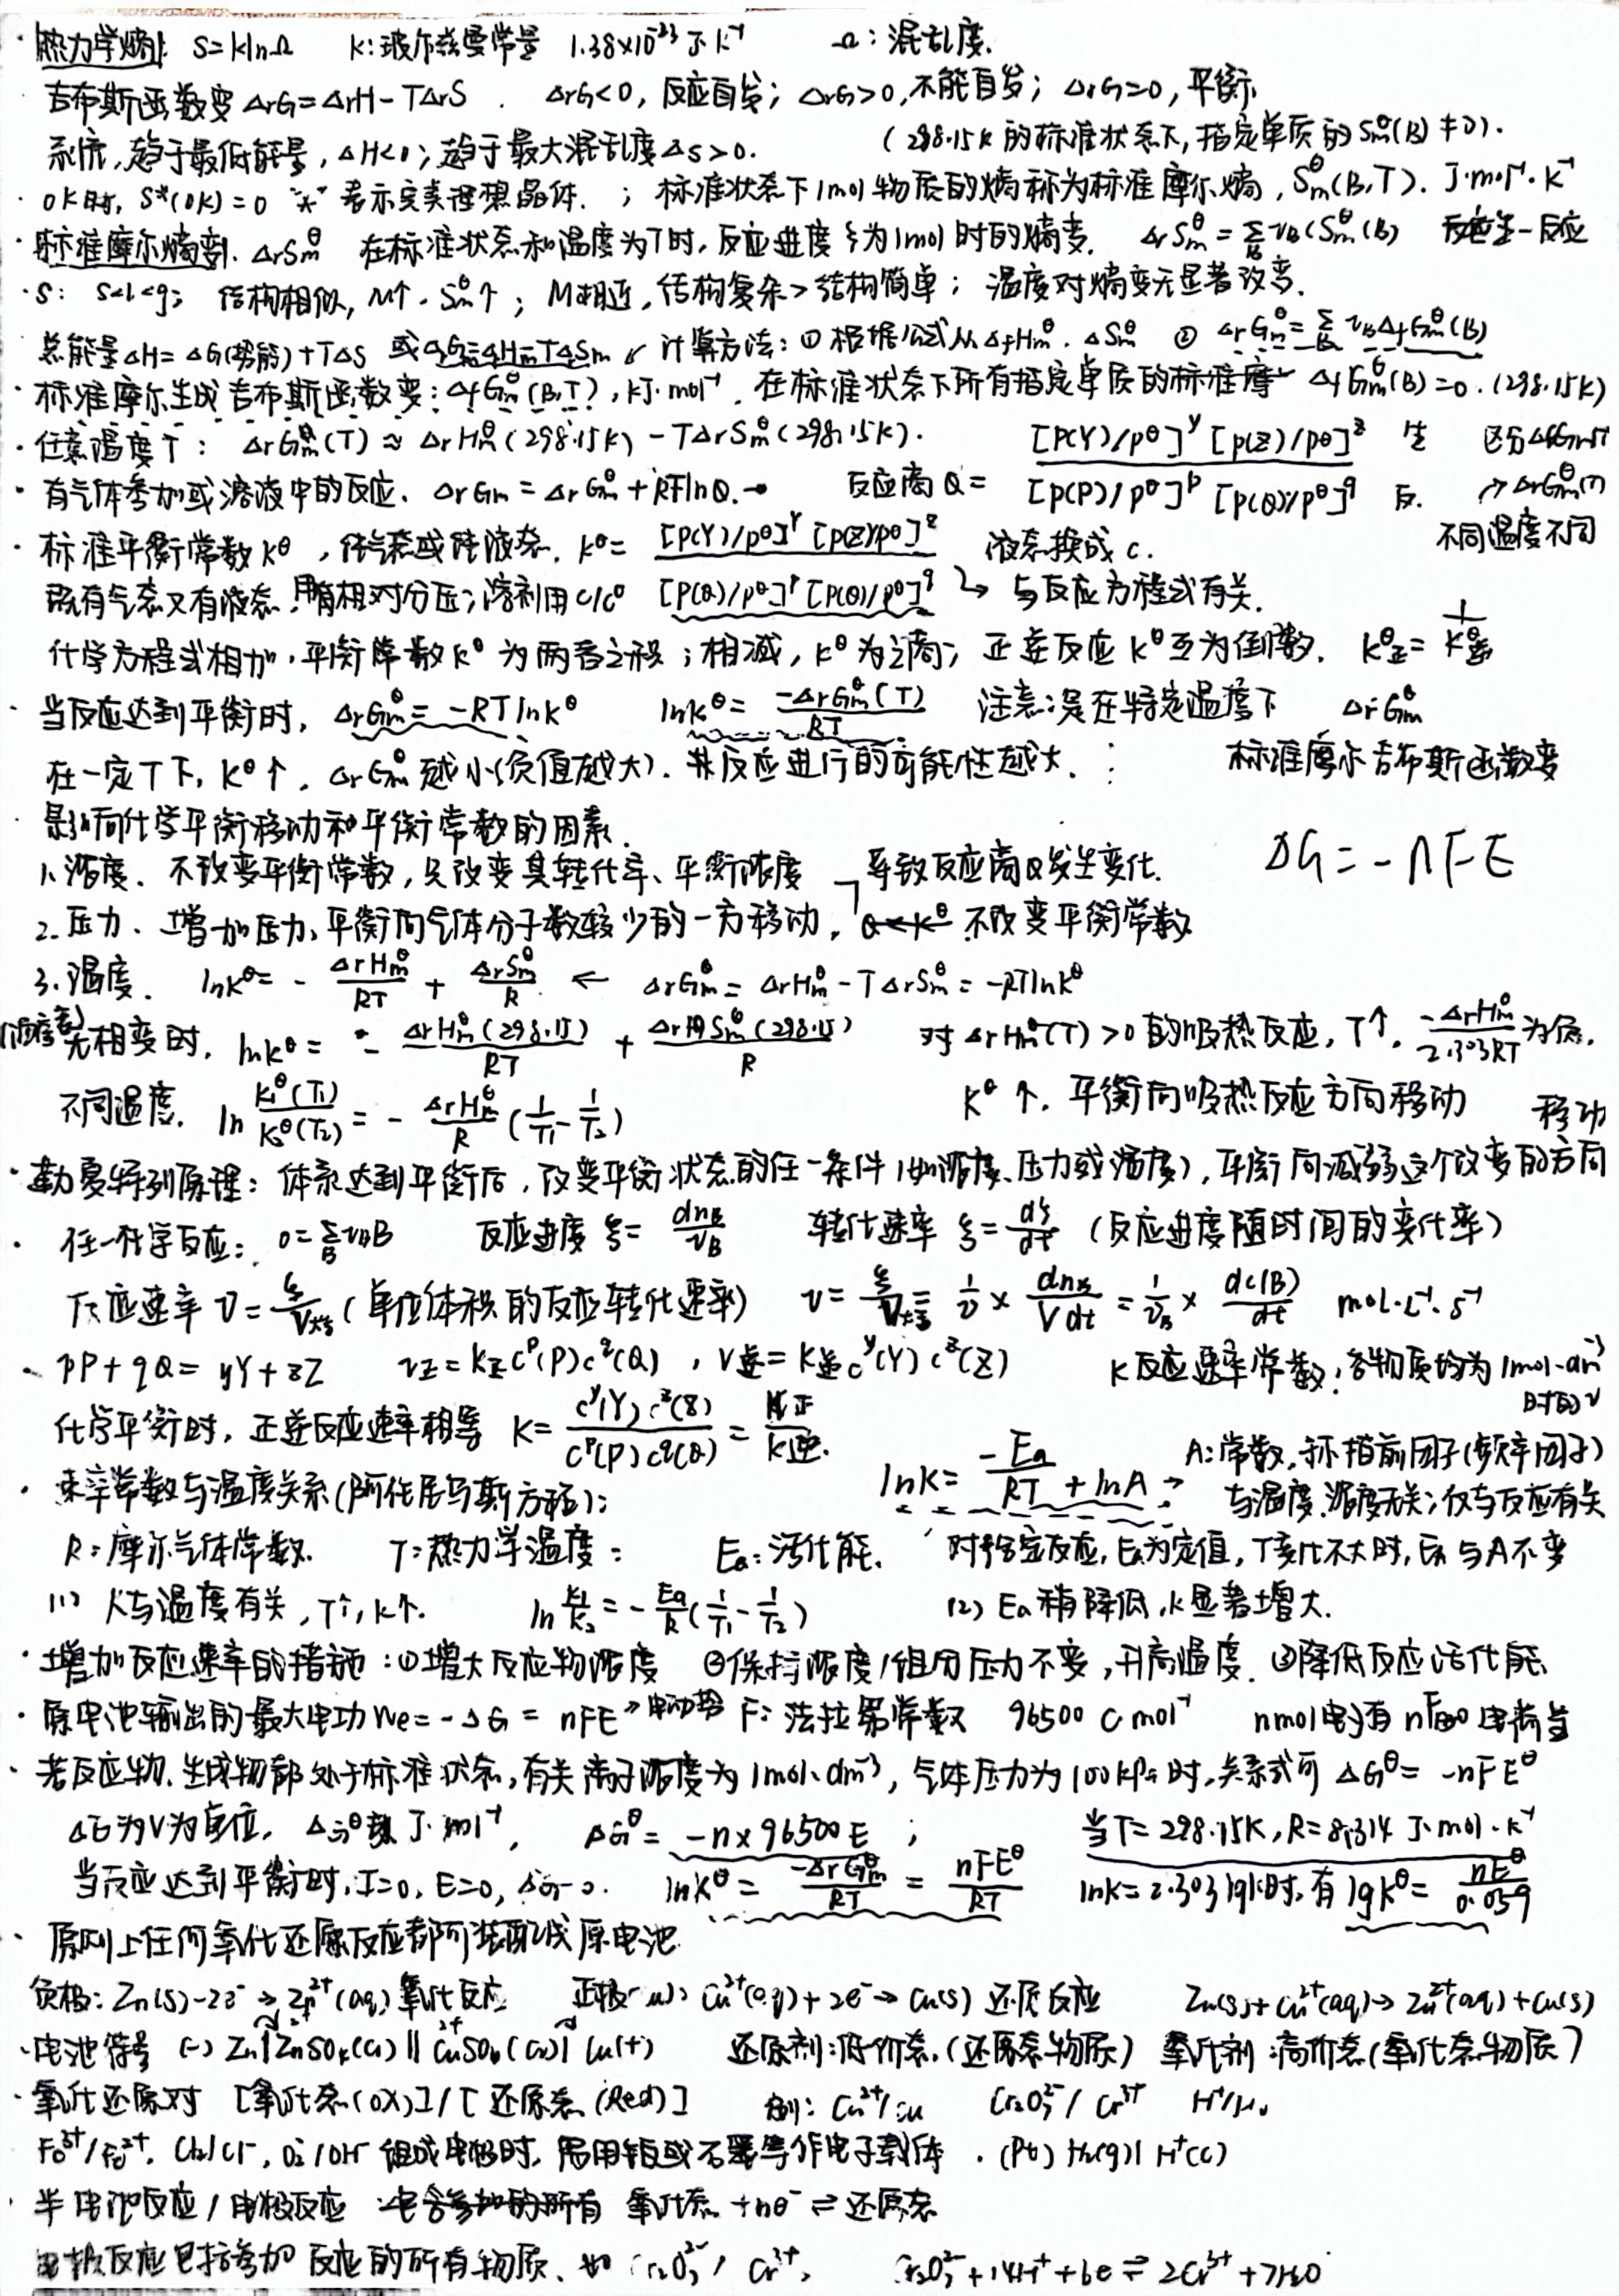 · 热力学熵: S=klnΩ k:玻尔兹曼常量 1.38×10⁻²³ J·k⁻¹ Ω:混乱度.
· 吉布斯函数变 ΔrG=ΔrH-TΔrS. ΔrG<0, 反应自发; ΔrG>0,不能自发; ΔrG=0,平衡.
系统,趋于最低能量,ΔH<0; 趋于最大混乱度Δs>0. (298.15K的标准状态下,指定单质的Sm^θ(B)≠0).
· 0K时, S*(0K)=0 "*"表示完美理想晶体. ; 标准状态下1mol物质的熵称为标准摩尔熵, Sm^θ(B,T). J·mol⁻¹·K⁻¹
· 标准摩尔熵变. ΔrSm^θ 在标准状态和温度为T时,反应进度ξ为1mol时的熵变. ΔrSm^θ=Σ_B νB(Sm^θ(B)
· S: s<l<g; 结构相似, M↑. Sm^θ↑; M相近,结构复杂>结构简单; 温度对熵变无显著改变.
总能量ΔH=ΔG(势能)+TΔS 或 计算方法:① 根据公式从ΔfHm^θ. ΔSm^θ ② ΔrGm^θ=Σ_B νBΔfGm^θ(B)
· 标准摩尔生成吉布斯函数变:ΔfGm^θ(B,T),kJ·mol⁻¹. 在标准状态下所有指定单质的标准摩 ΔfGm^θ(B)=0.(298.15K)
· 任意温度T: ΔrGm^θ(T)≈ΔrHm^θ(298.15K)-TΔrSm^θ(298.15K). [P(Y)/pθ]^y [p(Z)/pθ]^z 生 区分
· 有气体参加或溶液中的反应. ΔrGm=ΔrGm^θ+RTlnQ. 反应商Q= [p(P)/p^θ]^p [p(Q)/p^θ]^q 反. →ΔrGm^θ(T)
不同温度不同
· 标准平衡常数K^θ, 纯气态或纯液态. K^θ= [P(Y)/pθ]^Y [P(Z)/pθ]^z 液态换成c.
既有气态又有液态.用相对分压;溶剂用c/c^θ [P(Q)/p^θ]^p [P(Q)/p^θ]^q ↳ 与反应方程式有关.
化学方程式相加,平衡常数K^θ为两者之积;相减, K^θ为之商; 正逆反应K^θ互为倒数. K^θ正=1/K^θ逆
· 当反应达到平衡时, ΔrGm^θ=-RTlnK^θ lnK^θ=-ΔrGm^θ(T)/RT 注意:是在特定温度下 ΔrGm^θ
在一定T下, K^θ↑, ΔrGm^θ越小(负值越大). 其反应进行的可能性越大. 标准摩尔吉布斯函数变
· 影响化学平衡移动和平衡常数的因素.
1.浓度. 不改变平衡常数,只改变其转化率、平衡浓度 导致反应商Q发生变化. ΔG=-nFE
2.压力. 增加压力,平衡向气体分子数较少的一方移动, 不改变平衡常数
3.温度. lnK^θ=-ΔrHm^θ/RT+ΔrSm^θ/R ← ΔrGm^θ=ΔrHm^θ-TΔrSm^θ=-RTlnK^θ
无相变时, lnK^θ=-ΔrHm^θ(298.15)/RT+ΔrSm^θ(298.15)/R 对ΔrHm^θ(T)>0的吸热反应, T↑, -ΔrHm^θ/2.303RT为负.
不同温度. ln K₁^θ(T₁)/K₂^θ(T₂)=-ΔrHm^θ/R(1/T₁-1/T₂) K^θ↑. 平衡向吸热反应方向移动 移动
· 勒夏特列原理: 体系达到平衡后,改变平衡状态的任一条件(如浓度、压力或温度),平衡向减弱这个改变的方向
· 任一化学反应: 0=Σ_B νBB 反应进度ξ=dnB/νB 转化速率ξ=dξ/dt (反应进度随时间的变化率)
反应速率 υ=ξ/V (单位体积的反应转化速率) υ=ξ/V=1/υ×dnB/Vdt=1/υB×dc(B)/dt mol·L⁻¹·s⁻¹
· pP+qQ=yY+zZ v正=k正c^p(P)c^q(Q), v逆=k逆c^y(Y)c^z(Z) K反应速率常数:各物质均为1mol·dm⁻³时的v
化学平衡时,正逆反应速率相等 K=c^y(Y)c^z(Z)/c^p(P)c^q(Q)=k正/k逆.
· 速率常数与温度关系(阿伦尼乌斯方程): lnK=-Ea/RT+lnA → A:常数,称指前因子(频率因子)
与温度.浓度无关;仅与反应有关
R:摩尔气体常数. T:热力学温度: Ea:活化能. 对指定反应, Ea为定值, T变化不大时, Ea与A不变
(1) k与温度有关, T↑, k↑. ln k₁/k₂=-Ea/R(1/T₁-1/T₂) (2) Ea稍降低, k显著增大.
· 增加反应速率的措施:①增大反应物浓度 ②保持浓度/组分压力不变,升高温度. ③降低反应活化能
· 原电池输出的最大电功We=-ΔG=nFE→电动势 F:法拉第常数 96500 C mol⁻¹ nmol电子有nF的电荷量
· 若反应物.生成物都处于标准状态,有关离子浓度为1mol·dm⁻³, 气体压力为100kPa时.关系式可 ΔG^θ=-nFE^θ
为V为单位, J·mol⁻¹, ΔG^θ=-n×96500E; 当T=298.15K, R=8.314 J·mol·K⁻¹
当反应达到平衡时, I=0, E=0, ΔG=0. lnK^θ=-ΔrGm^θ/RT=nFE^θ/RT lnK=2.303lgK时,有lgK^θ=nE^θ/0.059
· 原则上任何氧化还原反应都可装配成原电池
负极:Zn(s)-2e⁻→Zn²⁺(aq)氧化反应 正极 Cu²⁺(aq)+2e⁻→Cu(s) 还原反应 Zn(s)+Cu²⁺(aq)→Zn²⁺(aq)+Cu(s)
· 电池符号 (-) Zn|ZnSO₄(c₁)||CuSO₄(c₂)|Cu(+) 还原剂:低价态.(还原态物质) 氧化剂:高价态(氧化态物质)
· 氧化还原对 [氧化态(OX)]/[还原态(Red)] 例: Cu²⁺/Cu Cr₂O₇²⁻/Cr³⁺ H⁺/H₂
Fe³⁺/Fe²⁺, Cl₂/Cl⁻, O₂/OH⁻ 组成电极时, 常用铂或石墨等作电子载体. (Pt) H₂(g)|H⁺(c)
· 半电池反应/电极反应 氧化态+ne⁻⇌还原态
电极反应包括参加反应的所有物质. 如 Cr₂O₇²⁻/Cr³⁺, Cr₂O₇²⁻+14H⁺+6e⇌2Cr³⁺+7H₂O